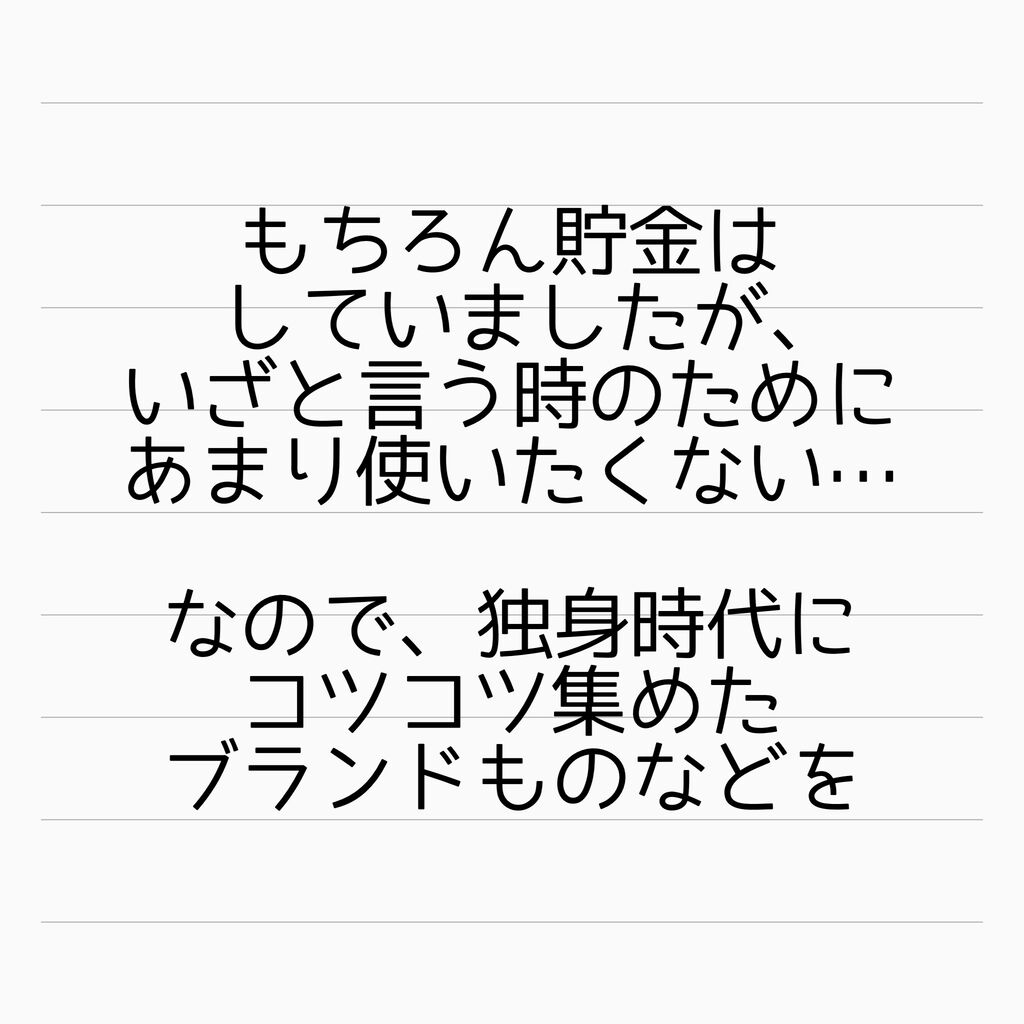 もちろん貯金は
していましたが、
いざと言う時のために
あまり使いたくない…
なので、独身時代に
コツコツ集めた
ブランドものなどを